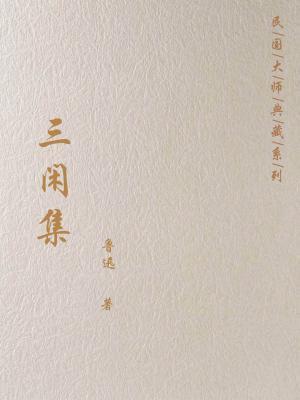 民|国|大|师|典|藏|系|列
三闲集
鲁迅 著